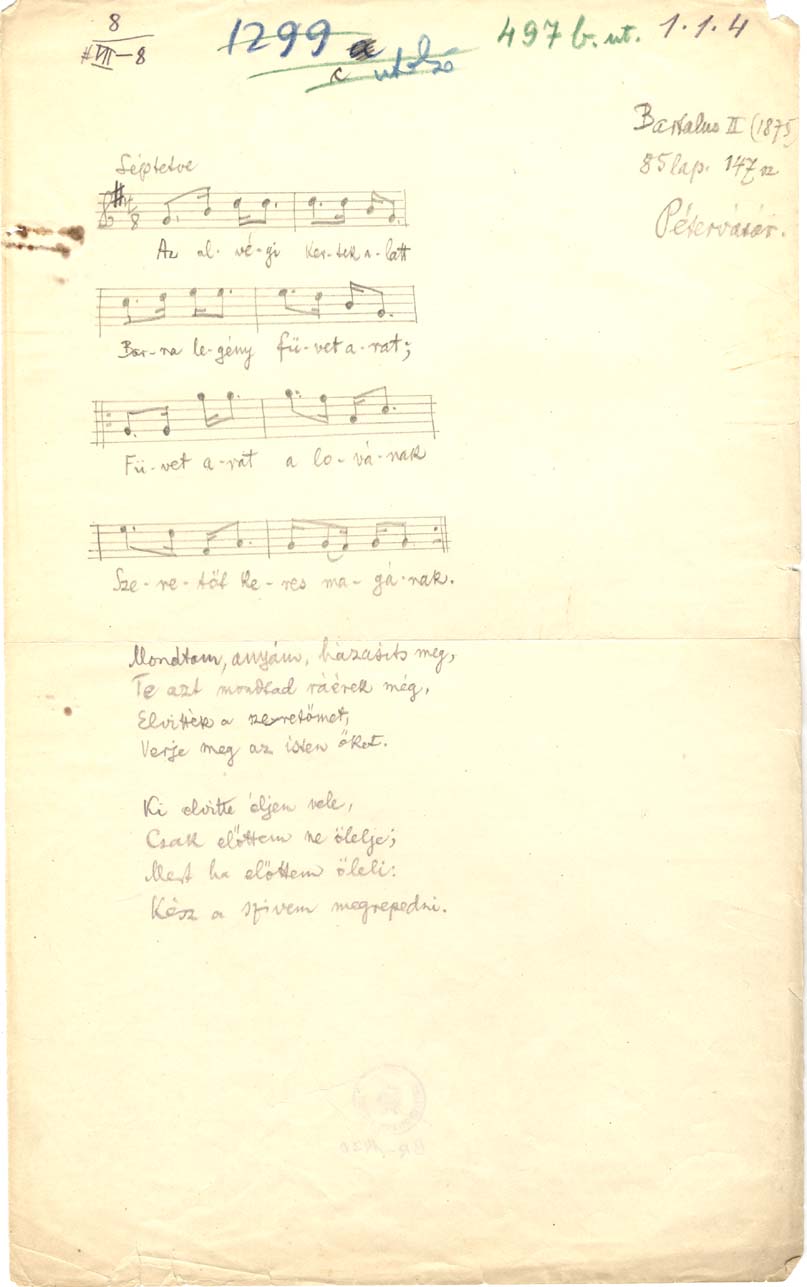 8
VII-8
1299
c utolsó
497 b. ut.
1.1.4
Bartalus II (1875)
85 lap. 147 sz
Pétervásár.
Léptetve
Az al-vé-gi ker-tek a-latt
Bar-na le-gény fü-vet a-rat;
Fü-vet a-rat a lo-vá-nak
Sze-re-tőt ke-res ma-gá-nak.
Mondtam, anyám, házasíts meg,
Te azt mondtad ráérek még,
Elvitték a szeretőmet,
Verje meg az isten őket.
Ki elvitte éljen vele,
Csak előttem ne ölelje;
Mert ha előttem öleli:
Kész a szivem megrepedni.